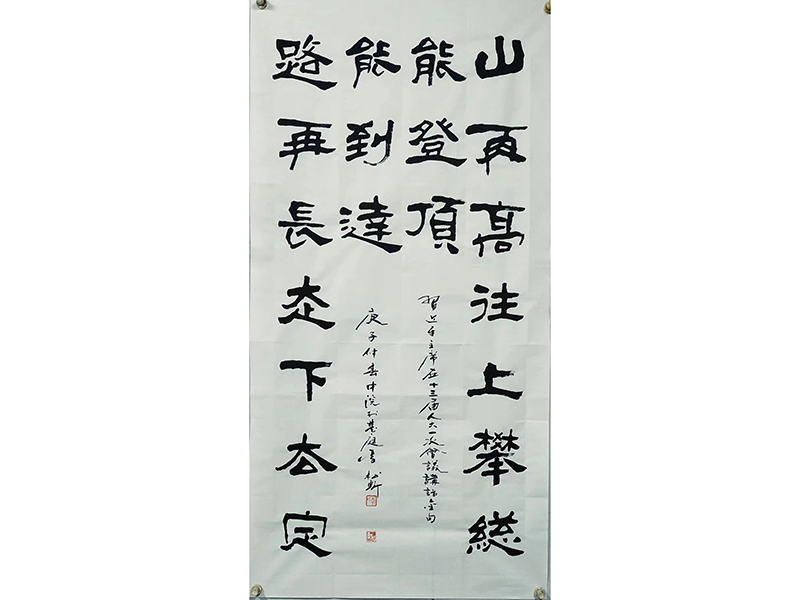 山再高往上攀総
能登頂
能到達
路再長走下去定
習近平主席在十三届人大一次會議講話金句
庚子仲春中浣於